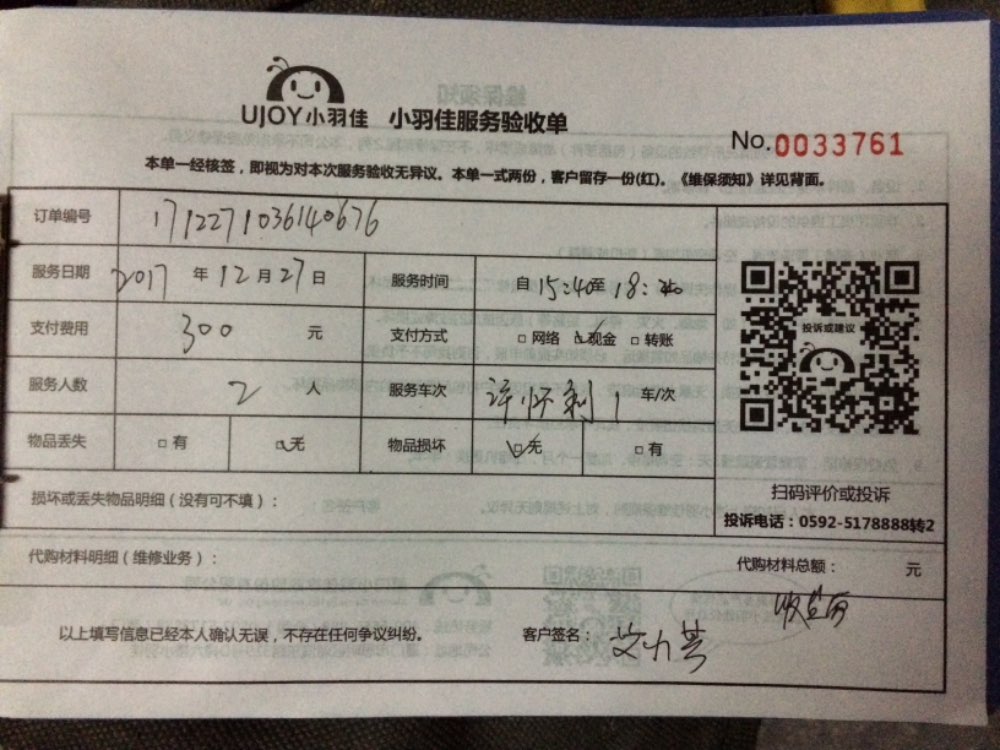 UJOY小羽佳 小羽佳服务验收单
No.0033761
本单一经核签，即视为对本次服务验收无异议。本单一式两份，客户留存一份(红)。《维保须知》详见背面。
订单编号 1712271036140676
服务日期 2017 年 12 月 27 日 服务时间 自 15:40 至 18:20
支付费用 300 元 支付方式 □ 网络 ☑ 现金 □ 转账
服务人数 2 人 服务车次 1 车/次
物品丢失 □ 有 ☑ 无 物品损坏 ☑ 无 □ 有
投诉或建议
扫码评价或投诉
投诉电话：0592-5178888转2
损坏或丢失物品明细（没有可不填）：
代购材料明细（维修业务）：
代购材料总额： 元
以上填写信息已经本人确认无误，不存在任何争议纠纷。 客户签名：